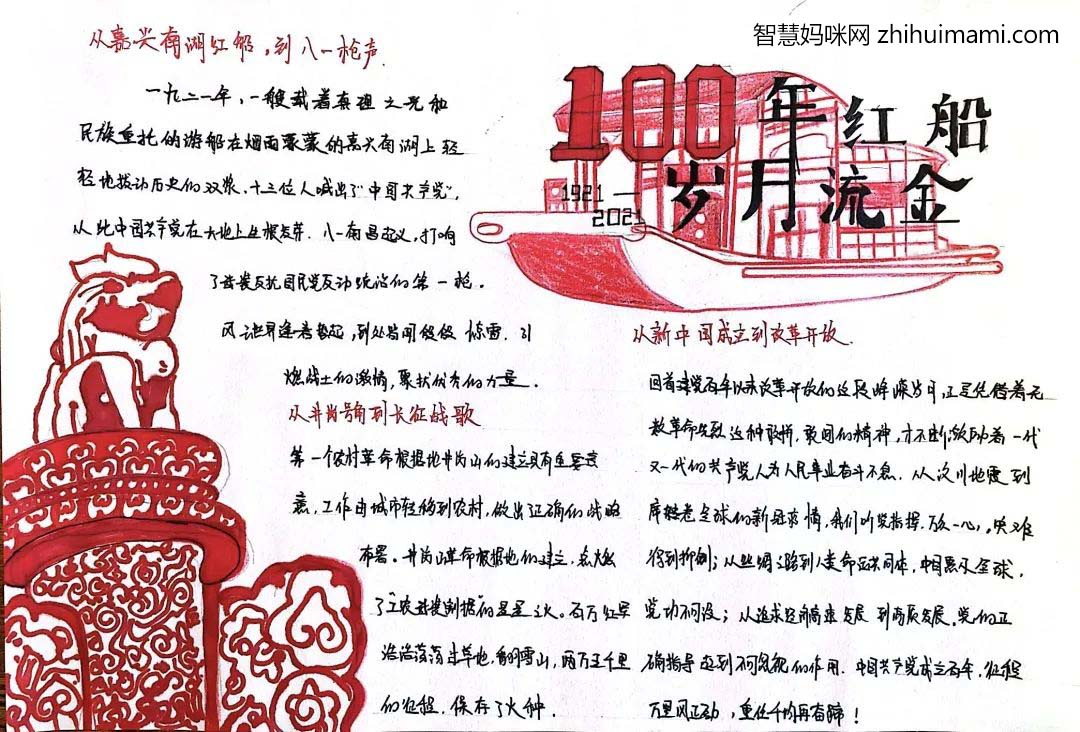 智慧妈咪网 zhihuimami.com
100年红船
岁月流金
1921—
2021
从嘉兴南湖红船,到八一枪声.
一九二一年,一艘载着真理之光和
民族重托的游船在烟雨蒙蒙的嘉兴南湖上轻
轻地拨动历史的双桨、十三位人喊出了"中国共产党",
从此中国共产党在大地上生根发芽.八一南昌起义,打响
了武装反抗国民党反动统治的第一枪。
惊雷.引
燃战士们的激情,聚

的力量.
从井岗号角到长征战歌
第一个农村革命根据地井岗山的建立具有重要意
义,工作由城市转移到农村,做出正确的战略
布署。井岗山革命根据地的建立,点燃
了"工农武装割据"的星星之火。百万红军
浩浩荡荡过草地,翻雪山,两万五千里
的征程,保存了火种.
从新中国成立到改革开放.
回首建党百年以来改革开放的这段峥嵘岁月,正是凭借着无
数革命先烈这种敢拼,敢闯的精神,才不断激励着一代
又一代的共产党人为人民事业奋斗不息.从汶川地震到
席卷全球的新冠疫情,我们听党指挥.万众一心,灾难
得到抑制;从丝绸之路到人类命运共同体,中国惠及全球,
党功不可没;从追求经济高速发展到高质发展.党的正
确指导起到不可忽视的作用.中国共产党成立百年,征程
万里风正劲,重任千钧再奋蹄!